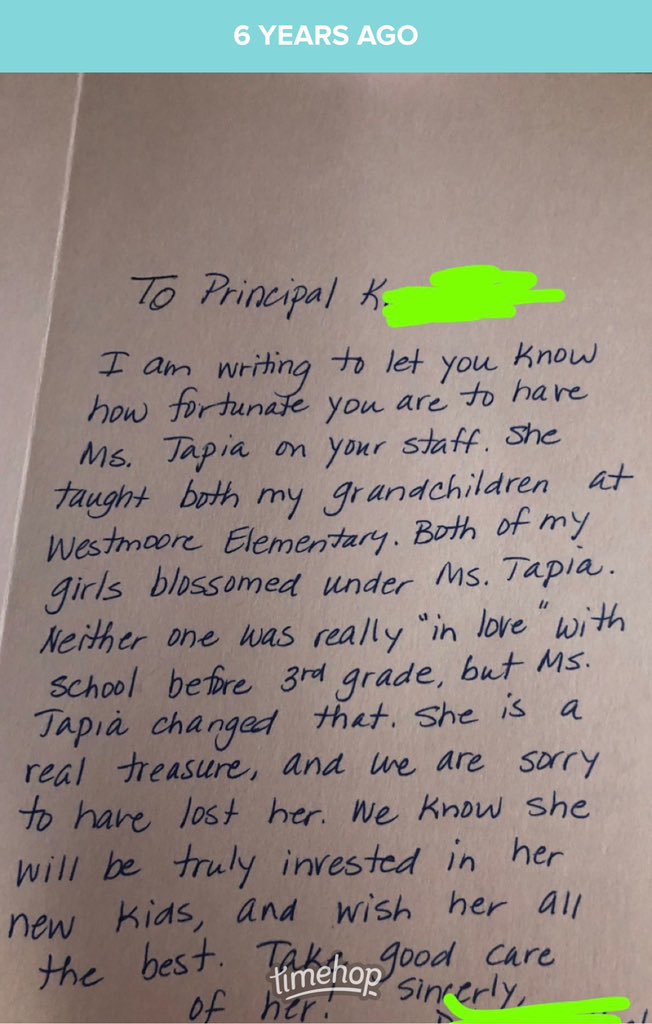 6 YEARS AGO
To Principal K.
I am writing to let you know
how fortunate you are to have
Ms. Tapia on your staff. She
taught both my grandchildren at
Westmoore Elementary. Both of my
girls blossomed under Ms. Tapia.
Neither one was really "in love" with
school before 3rd grade, but Ms.
Tapia changed that. She is a
real treasure, and we are sorry
to have lost her. We know she
will be truly invested in her
new kids, and wish her all
the best. Take good care
timehop
of her! Sincerely,